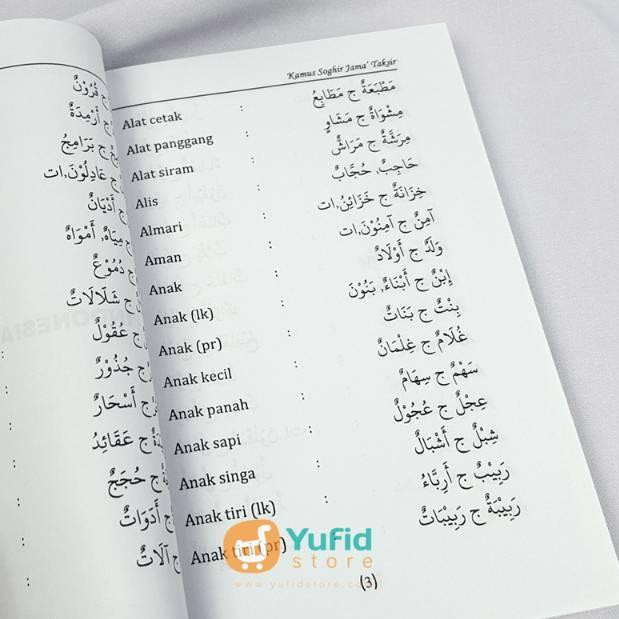 Kamus Soghir Jama' Taksir
Alat cetak : مَطْبَعَةٌ ج مَطَابِعُ
Alat panggang : مِشْوَاةٌ ج مَشَاوٍ
Alat siram : مِرَشَّةٌ ج مَرَاشُّ
Alis : حَاجِبٌ، حُجَّابٌ
Almari : خِزَانَةٌ ج خَزَائِنُ، ات
Aman : آمِنٌ ج آمِنُوْنَ، ات
Anak : وَلَدٌ ج أَوْلَادٌ
Anak (lk) : اِبْنٌ ج أَبْنَاءٌ، بَنُوْنَ
Anak (pr) : بِنْتٌ ج بَنَاتٌ
Anak kecil : غُلَامٌ ج غِلْمَانٌ
Anak panah : سَهْمٌ ج سِهَامٌ
Anak sapi : عِجْلٌ ج عُجُوْلٌ
Anak singa : شِبْلٌ ج أَشْبَالٌ
Anak tiri (lk) : رَبِيْبٌ ج أَرِبَّاءُ
Anak tiri (pr) رَبِيْبَةٌ ج رَبِيْبَاتٌ
(3)
ج قُرُوْنٌ
ج أَزْمِدَةٌ
ج بَرَامِجُ
ج عَادِلُوْنَ، ات
ج أَدْيَانٌ
ج مِيَاهٌ، أَمْوَاهٌ
ج دُمُوْعٌ
ج شَلَّالَاتٌ
ج عُقُوْلٌ
ج جُذُوْرٌ
ج أَسْحَارٌ
ج عَقَائِدُ
ج حُجَجٌ
ج أَدَوَاتٌ
ج آلَاتٌ
Yufid
store
www.yufidstore.com